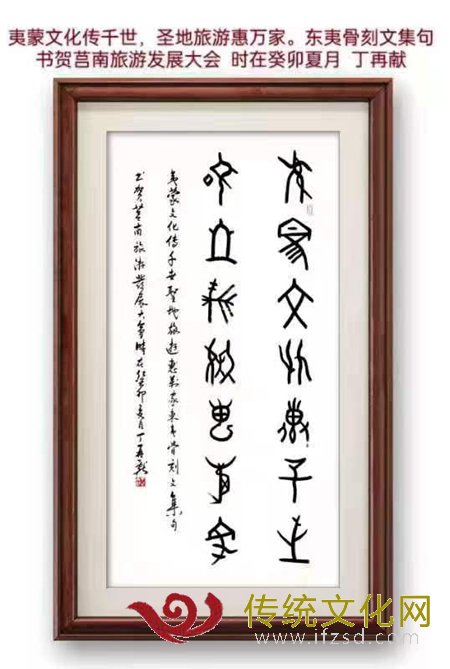 夷蒙文化传千世，圣地旅游惠万家。东夷骨刻文集句
书贺莒南旅游发展大会 时在癸卯夏月 丁再献
夷蒙文化传千世
圣地旅游惠万家
夷蒙文化传千世聖地旅遊惠萬家東夷骨刻文集句
书贺莒南旅游發展大會時在癸卯夏月丁再献
传统文化网
www.ifzsd.com